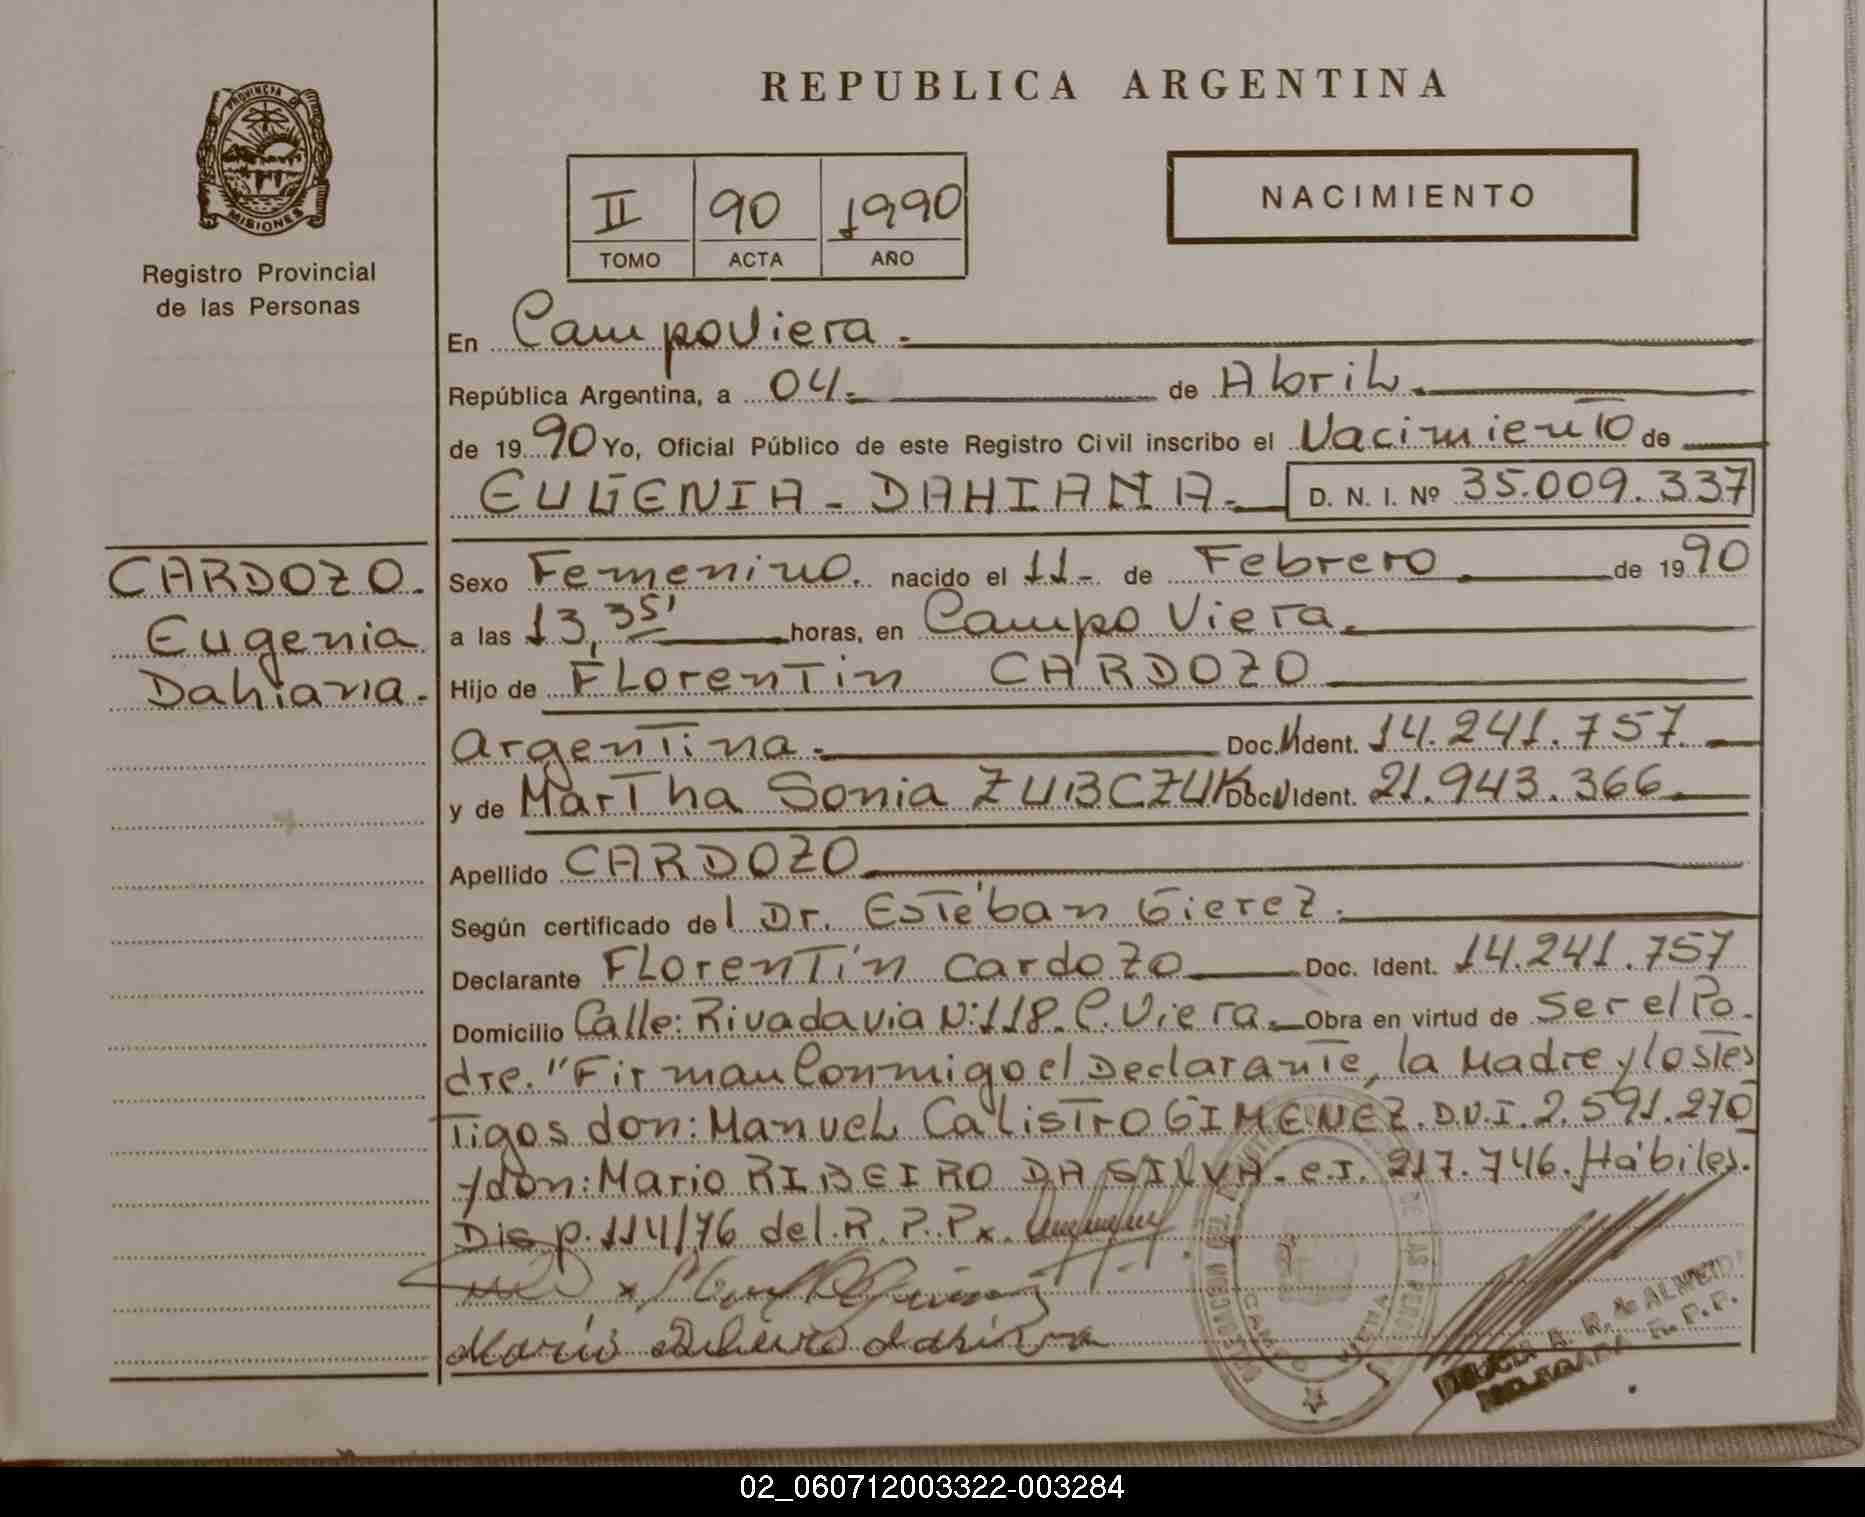 REPUBLICA ARGENTINA
PROVINCIA DE
MISIONES
Registro Provincial
de las Personas
II 90 1990
TOMO ACTA AÑO
NACIMIENTO
En Campo Viera.
República Argentina, a 04. de Abril.
de 1990 Yo, Oficial Público de este Registro Civil inscribo el Nacimiento de
EUGENIA - DAHIANA. D. N. I. Nº 35.009.337
CARDOZO.
Eugenia
Dahiana.
Sexo Femenino. nacido el 11- de Febrero de 1990
a las 13,35' horas, en Campo Viera.
Hijo de Florentín CARDOZO
Argentina. Doc. Ident. 14.241.757
y de Martha Sonia ZUBCZUK Doc. Ident. 21.943.366.
Apellido CARDOZO
Según certificado del Dr. Estéban Gierez.
Declarante Florentín Cardozo Doc. Ident. 14.241.757
Domicilio Calle: Rivadavia N:118. C. Viera. Obra en virtud de Ser el Pa-
dre. "Firman Conmigo el Declarante, la Madre y los tes
tigos don: Manuel Calistro GIMENEZ. D.N.I. 2.591.270
y don: Mario RIBEIRO DA SILVA. C.I. 217.746. Hábiles.
Disp. 114/76 del. R. P. Px.
Mario Ribeiro da Silva
CAMPO VIERA
DELEGADA R.P.P.
02_060712003322-003284